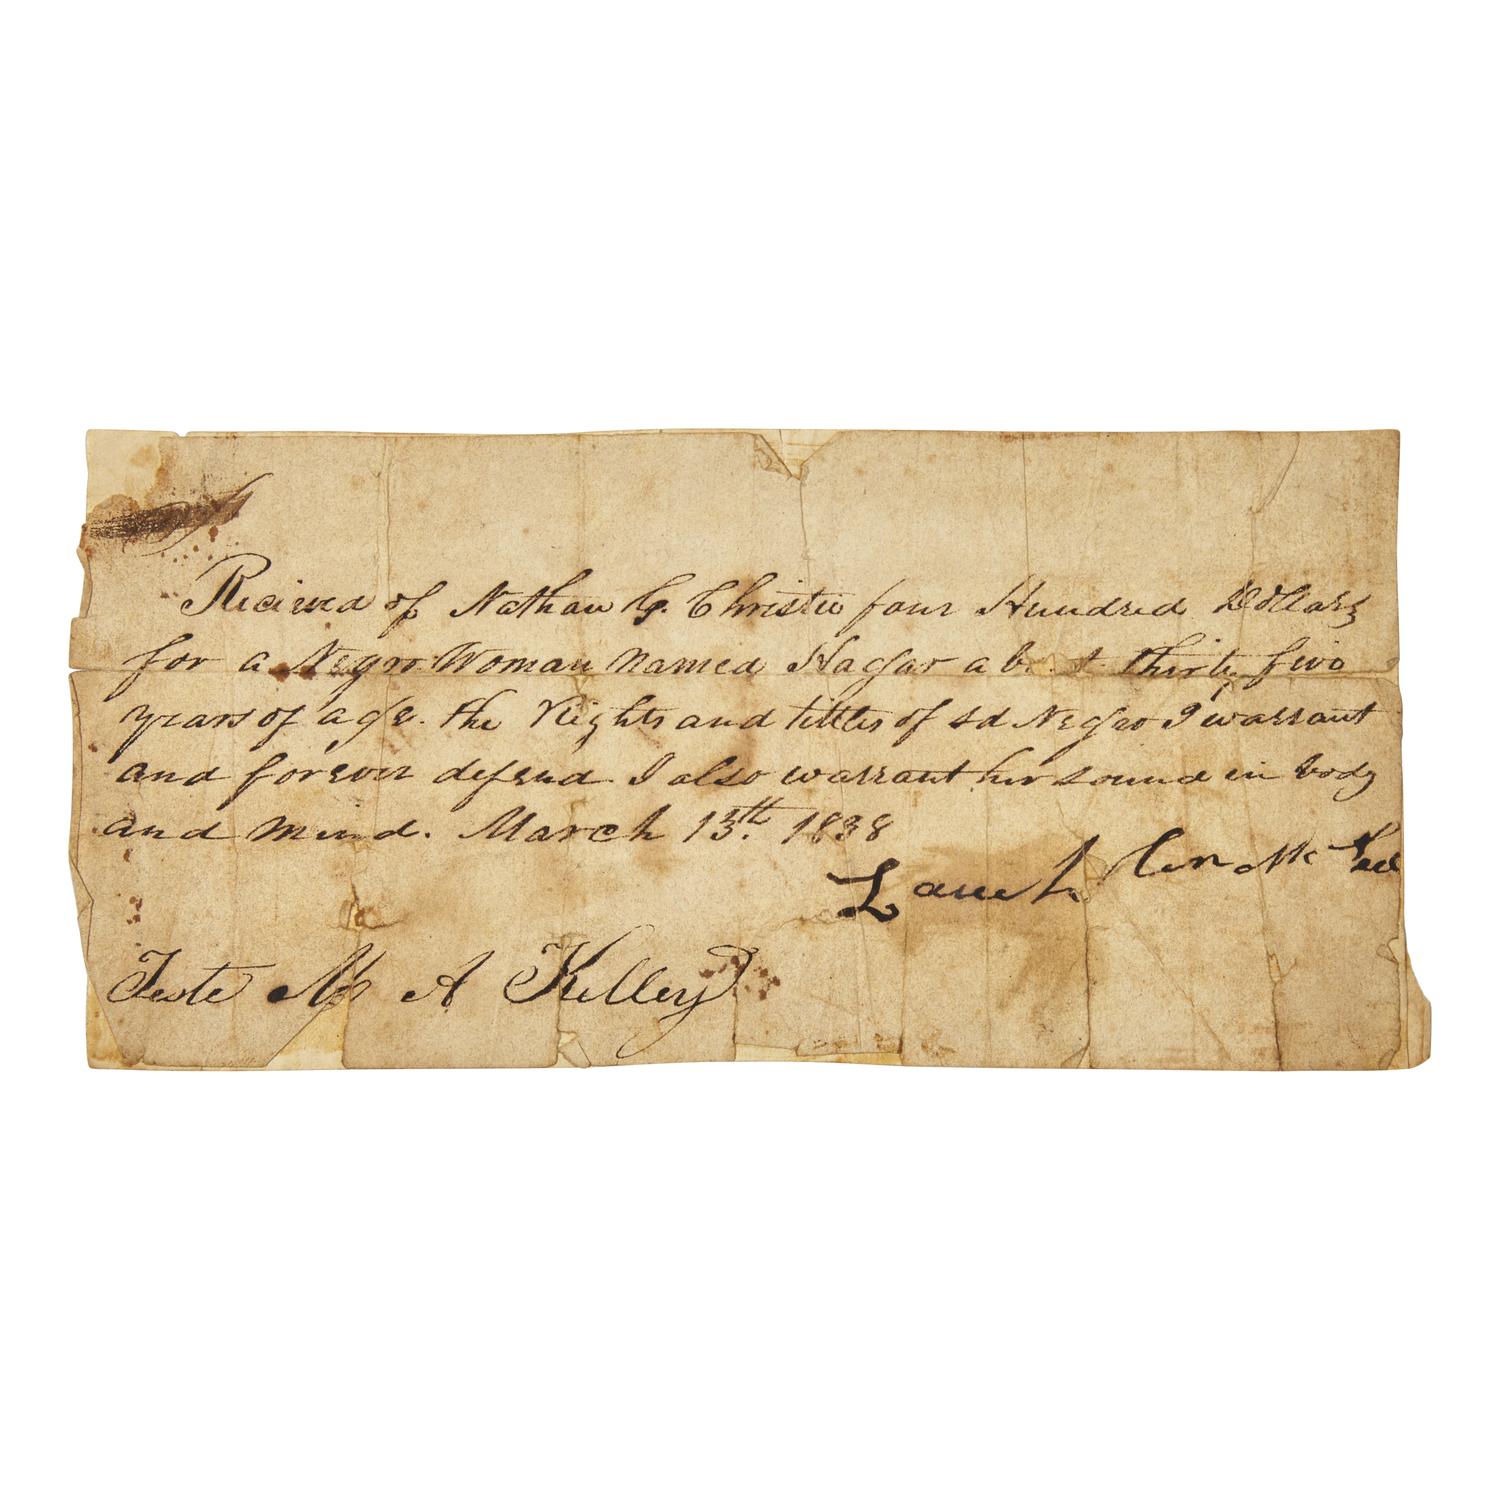 Recieved of Nathan G. Christie four Hundred Dollars
for a Negro Woman named Hagar ab t thirty five
years of age. the Rights and tittles of sd Negro I warrant
and forever defend. I also warrant her sound in body
and mind. March 13th. 1838
Lauchlen Mc
Teste A Kelley